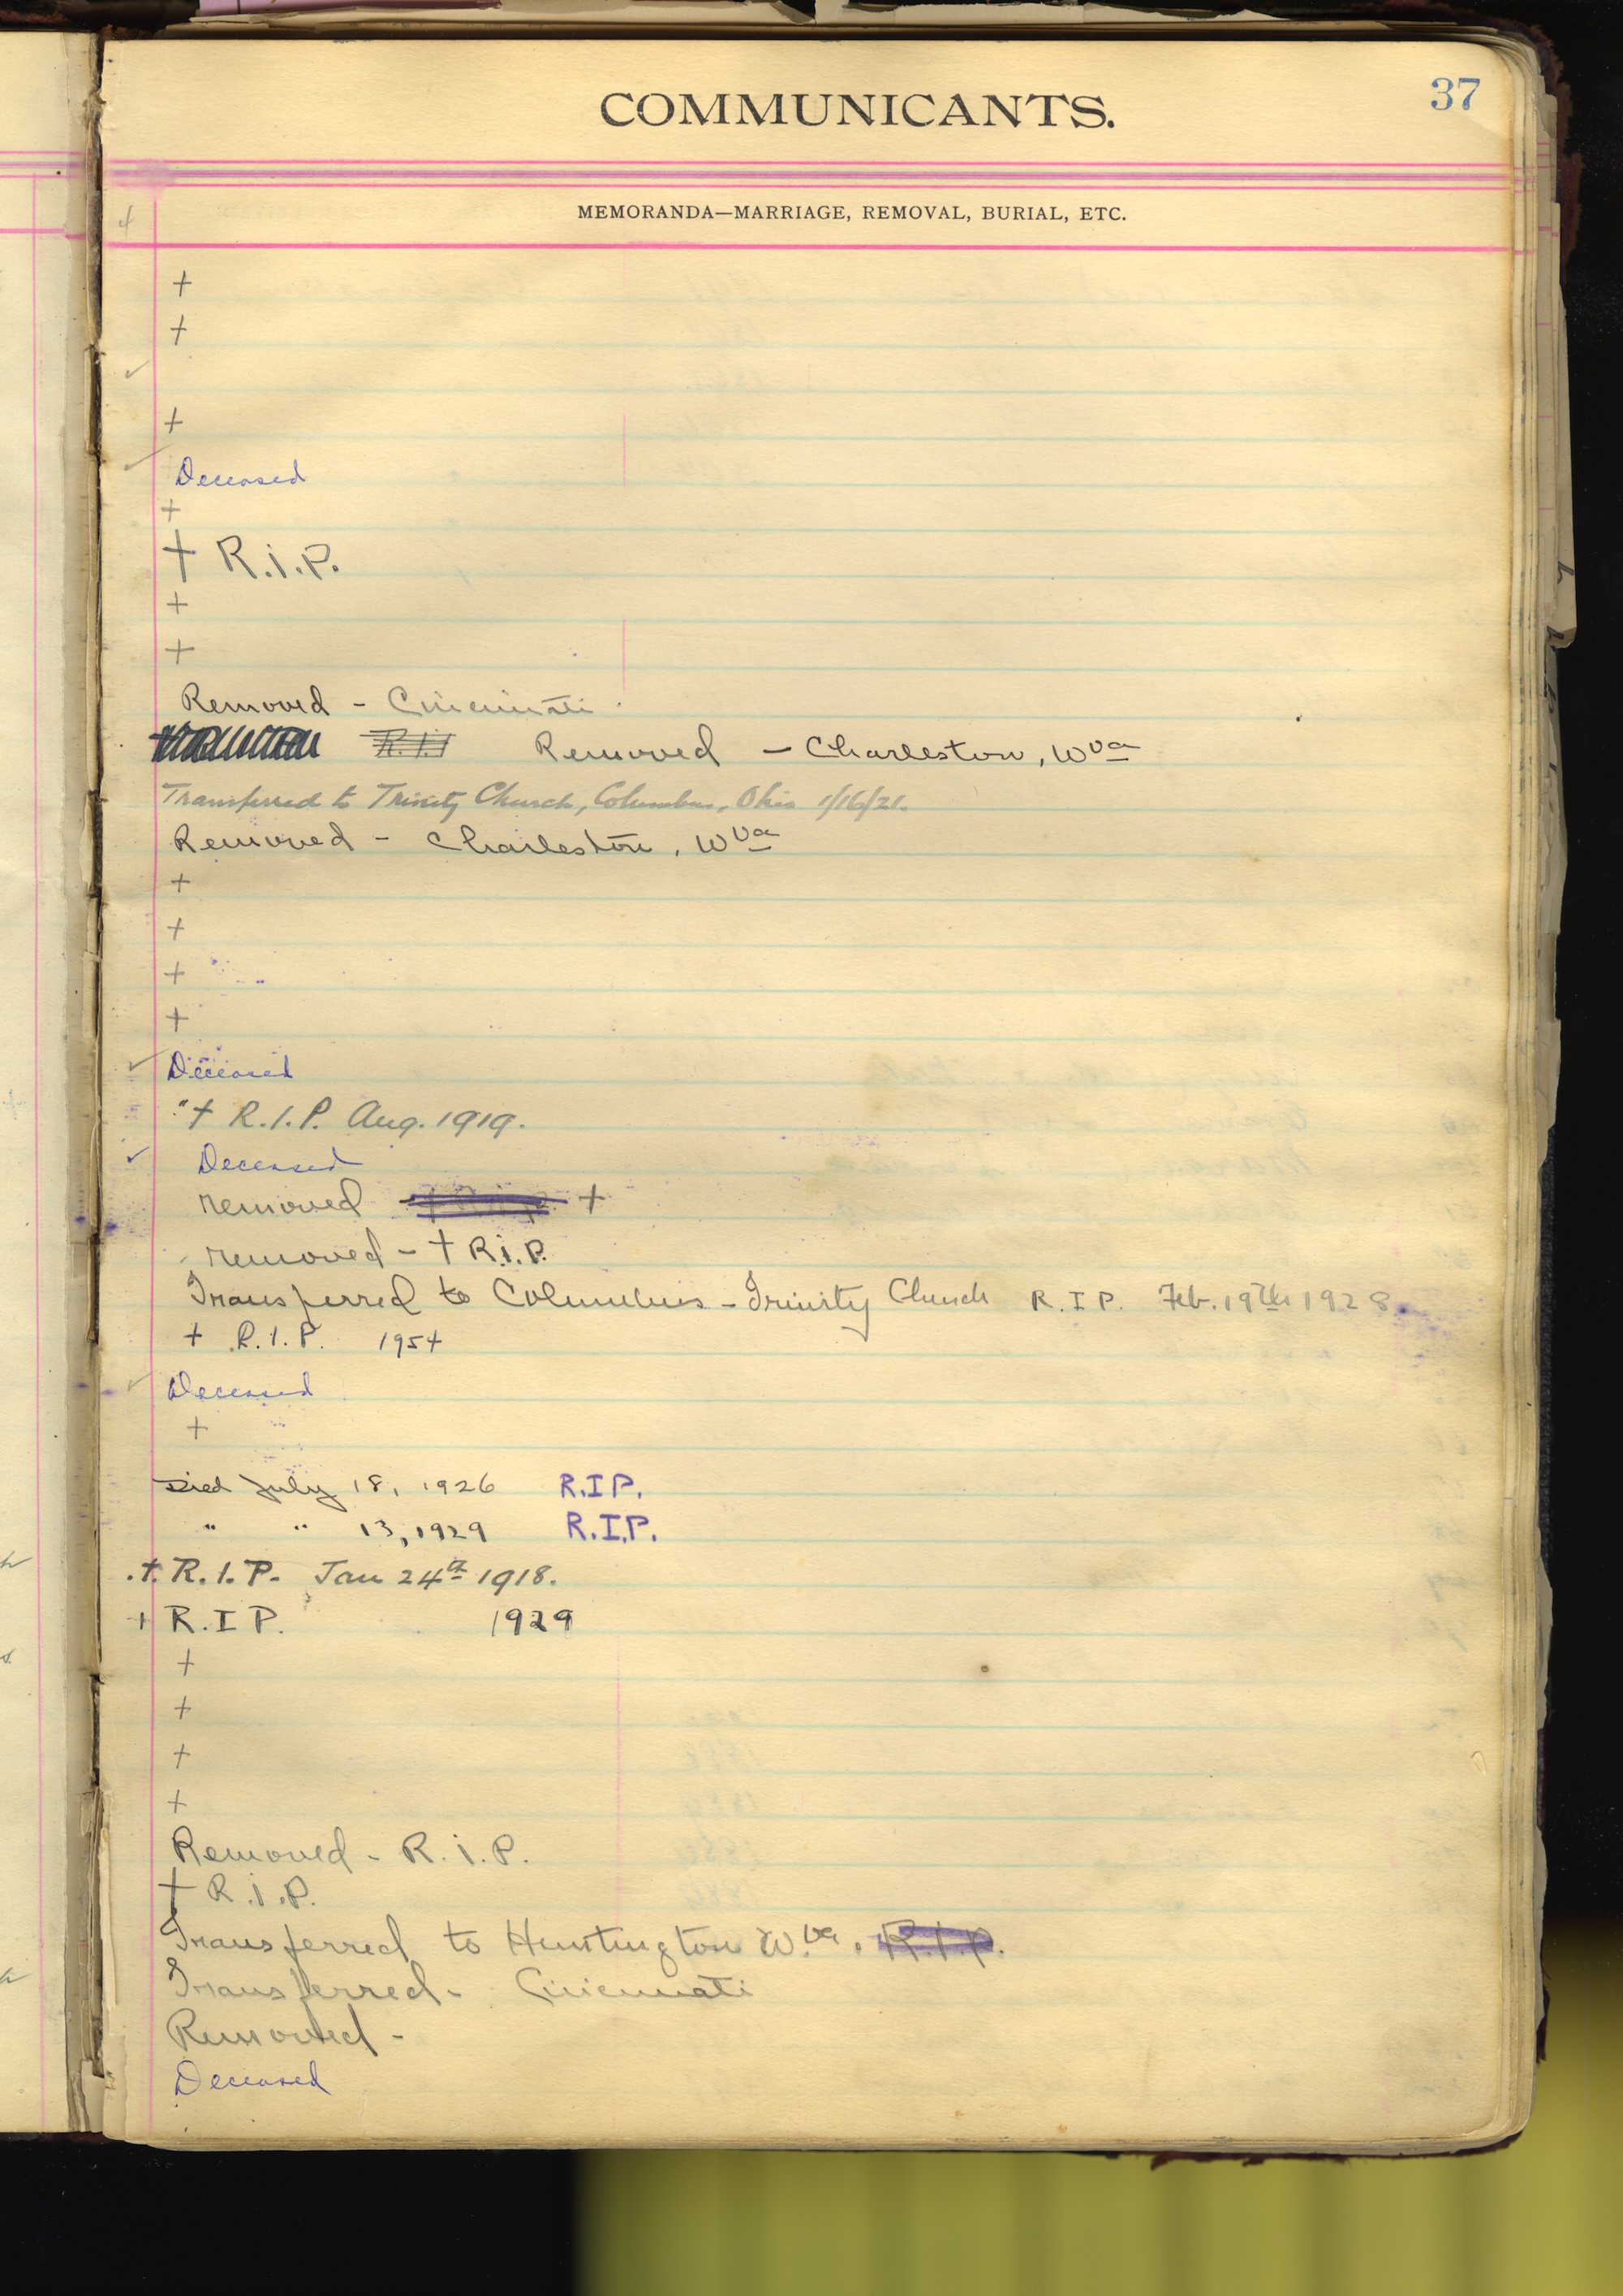 COMMUNICANTS.
37
MEMORANDA—MARRIAGE, REMOVAL, BURIAL, ETC.
+
+
✓
+
✓ Deceased
+
+ R.i.P.
+
+
Removed - Cincinnati
R.I.P. Removed - Charleston, W Va
Transferred to Trinity Church, Columbus, Ohio 1/16/21.
Removed - Charleston, W Va
+
+
+
+
✓ Deceased
+ R.I.P. Aug. 1919.
✓ Deceased
removed +
removed - + R.i.P.
Transferred to Columbus - Trinity Church R.I.P. Feb. 19th 1928
+ R.I.P. 1954
✓ Deceased
+
Died July 18, 1926 R.I.P.
" " 13, 1929 R.I.P.
+ R.I.P. Jan 24th 1918.
+ R.I.P. 1929
+
+
+
+
Removed - R.i.P.
+ R.i.P.
Transferred to Huntington W. Va. R.I.P.
Transferred - Cincinnati
Removed -
Deceased